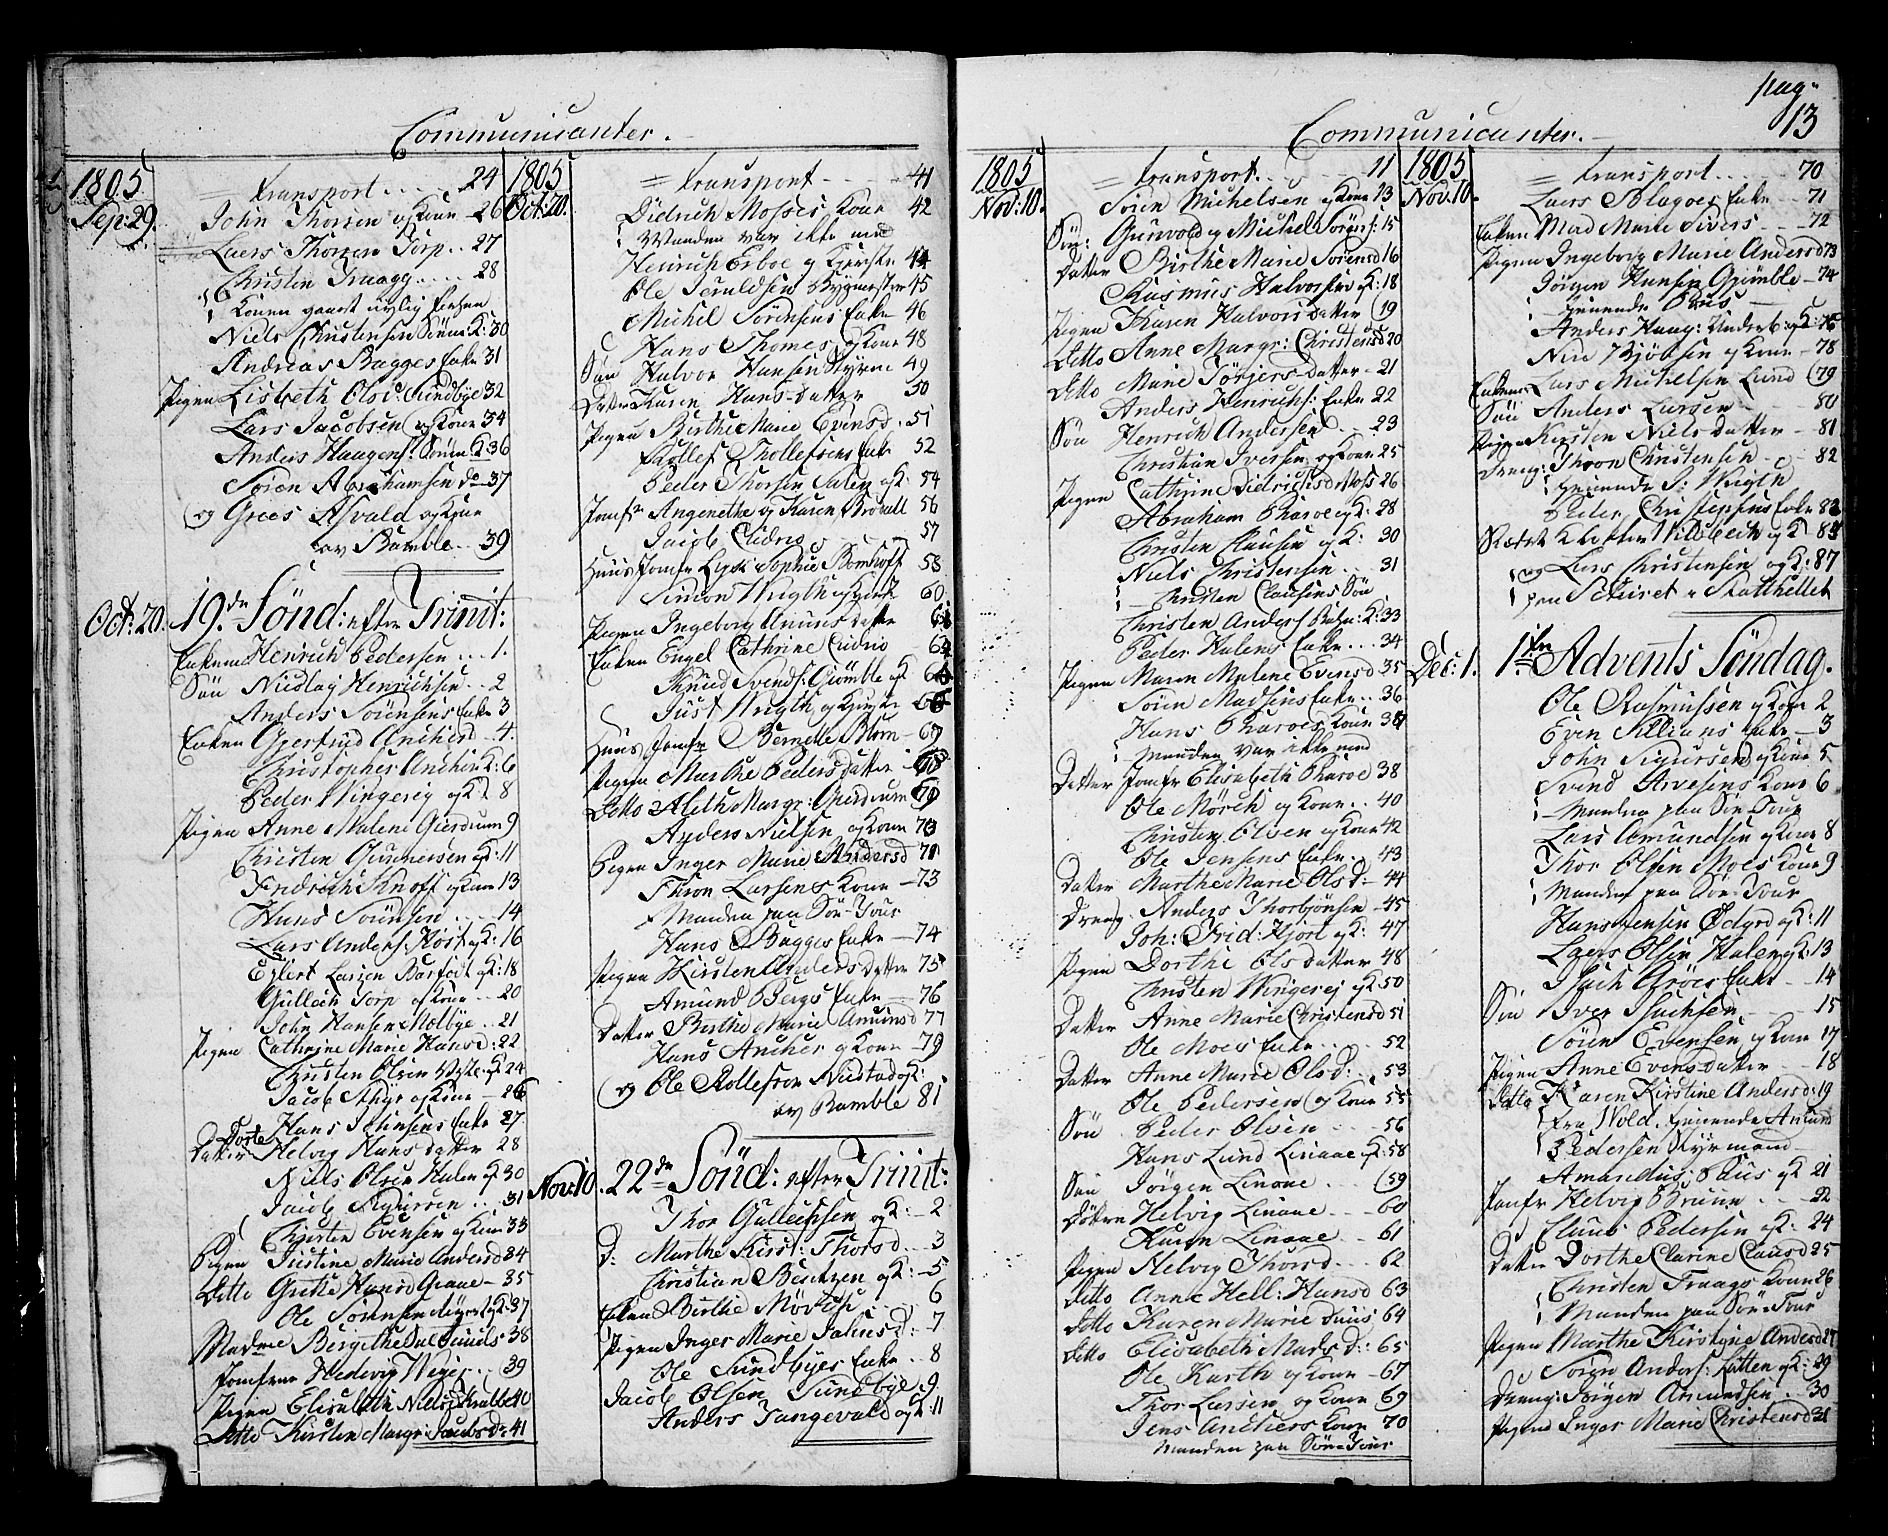 Communicanter.
1805
Sep: 29.
= Transport . . . . 24
John Thorsen og Kone - 26
Laers Thorsen Torp . . 27
Christen Traagg . . . . 28
Konen
Niels Christensen K: 30
Andreas Bagges Enke 31
Pigen Lisbeth Olsd: Sundbye 32
Lars Jacobsen og Kone 34
Anders Haagens: K 36
Søren Abrahamsen 37
og Grees Asvald og Kone
av Bamble . . 39
Oct: 20. 19de Sønd: efter Trinit:
Enkem Henrich Pedersen . . . 1.
Søn Nicolay Henrichsen . . 2
Anders Sørensens Enke 3
Enken Gjertrud Ancherd - 4.
Christopher Ancher K: 6
Peder Wingereig og K 8
Pigen Anne Malene Gierdrum 9
Christen Gunnersen og K: 11
Fredrich Knoff og Kone 13
Hans Sørensen . . . . 14
Lars Anders: Høst og K: 16
Eylert Larsen Barfodt og K: 18
Gullich Torp og Kone . . 20
John Hansen Melbye . . 21
Pigen Cathrine Marie Hansd: 22
Christen Olsen og K 24
Jacob og Kone - 26
Hans Johnsens Enke 27.
Dorte
Datter Helvig Hans datter 28
Niels Olsen Halen og K: 30
Jacob Sigursen . . . 31
Christen Evensen og Kone 33
Pigen Justine Marie Andersd 34
Ditto Grethe Hansd Graae - 35
Ole Sørensen og K: 37
Madme Bergithe 38
Jomfrue Hedevig Weyer . . . 39
Pigen Elisabeth Nielsd Krabbe 40
Ditto Kirsten Margr: Jacobsdr 41
1805
Oct: 20.
= Transport - - - - 41
Didrich Mosses Kone 42
Manden var ikke med
Heinrich Erboe og 44
Ole Byemester 45
Michel Sørensens Enke 46
Hans Thomes: og Kone 48
Søn Halvor Hansen Styrm 49
Datter Karen Hans-datter 50
Pigen Birthe Marie Evensd . 51
Rollef Thollefsens Enke 52
Peder Thorsen og K: 54
Jomfr Angenethe og Karen Brovall 56
Jacob Cudrio 57
Huus Jomfr Sophie Bomhoff 58
Simon Wrigth og 60
Pigen Ingeborg Amuns datter 61
Enken Engel Cathrine Cudrio - 62
Knud Svends: Giømble og K 64
Just Wrigth og 66
Huus Jomfr Bernelle Blom - 67
Pigen Marthe Peders datter 68
Ditto Aleth Margr: Gierdrum 69
Anders Nielsen og Kone 70
Pigen Inger Marie Andersd 71
Thron Larsens Kone - 73
Manden paa Søe-Tour
Hans Bagges Enke - 74
Pigen Kirsten Anders datter 75
Amund Bergs Enke - 76
Datter Birthe Marie Amunsd 77
Hans Ancher og Kone - 79
og Ole Rollefsen Nustad og K:
av Bamble 81
Nov: 10. 22de Sønd: efter Trinit:
Thor Gullichsen og K: - 2
D: Marthe Kirst: Thorsd . . 3
Christian Bentzen og K: - 5
Enken Birthe 6
Pigen Inger Marie d: - 7
Ole Sundbyes Enke . . 8
Jacob Olsen Sundbye 9.
Anders Tangevald og K: 11
pag:
13
Communicanter.
1805
Nov: 10.
= Transport . . . . 11
Søren Michelsen og Kone 13
Søn: Gunvold og Michel Sørens: 15
Datter Birthe Marie Sørensd 16
Rasmus Halvorsen og K: 18
Pigen Karen Halvors datter 19
Ditto Anne Margr: Christensd 20
Ditto Marie Tørjers datter - 21
Anders Henrichs: Enke 22
Søn Henrich Andersen . . 23
Christian Iversen og Kone 25
Pigen Cathrine Didrichsdr Moss 26
Abraham Pharoe og K: 28
Christen Clausen og K: 30
Niels Christensen . . . 31
Christen Clausens Søn
Christen Anders K: 33
Peder Halens Enke . . . 34
Pigen Maren Malene Evensd 35
Søren Madsens Enke . . 36
Hans Pharoes Kone 37
Manden var ikke med
Datter Jomfr Elisabeth Pharoe 38
Ole Mørch og Kone . . 40
Christen Olsen og Kone 42
Ole Jensens Enke . . 43
Datter Marthe Marie Olsd: - 44
Dreng Anders Thorbjørnsen - 45
Joh: Frid: Hjort og K: 47
Pigen Dorthe Ols datter 48
Christen Wingerej og K 50
Datter Anne Marie Christensd 51
Ole Moes Enke . . . 52
Datter Anne Marie Olsd: . . 53
Ole Pedersen og Kone 55
Søn Peder Olsen . . . . 56
Hans Lund Linaae og K: 58
Søn Jørgen Linaae . . . 59
Døttren Helvig Linaae . . 60
Karen Linaae . . 61
Pigen Helvig Thorsd . . 62
Ditto Anne Hell: Hansd 63
Ditto Karen Marie Duus 64
Ditto Elisabeth Madsd: . 65
Ole Karth og Kone - 67
Thor Larsen og Kone 69
Jens Anchers Kone 70
Manden paa Søe-Tour
1805
Nov: 10.
= Transport . . . . 70
Laers Blagoes Enke . . 71
Enken Mad Marie Sivers . . . . 72
Pigen Ingeborg Marie Andersd 73
Jørgen Hansen Gjømble - 74
tjenende Paus
Anders Haag: Underb: og K: 76
Niri Bjønsen og Kone - 78
Enkem Lars Michelsen Lund 79
Søn Anders Larsen . . . . 80
Pigen Kirsten Niels datter - 81
Dreng: Thron Christensen - 82
tjenende S: Wrigth
Peder Christensens Enke 83
Klokker Wildbech og K 85
og Lars Christensen og K: 87
paa Stathellet
Dec: 1. 1ste Advents Søndag.
Ole Rasmussen og Kone 2
Even Kilians Enke - 3
John Sigursen og Kone 5
Svend Arvesens Kone 6
Manden paa Søe-Tour
Lars Amundsen og Kone 8
Thor Olsen Moes Kone 9
Manden paa Søe-Tour
Hans Jensen Ødgrd og K: 11
Laers Olsen Halen og K: 13
Isach Grøes Enke . . 14
Søn Iver Isachsen . . . . 15
Søren Evensen og Kone 17
Pigen Anne Evens datter . . 18
Ditto Karen Kirstine Andersd: 19
fra Wold, tjenende Amund
Pedersen Styrmand
Amandus Paus og K 21
Jomfr Helvig Bruun . . . 22
Claus Pedersen og K: 24
Datter Dorthe Clarine Clausd 25
Christen Traags Kone 26
Manden paa Søe-Tour
Pigen Marthe Kirstine Andersd 27
Søren Anders: og K: 29
Dreng: Jørgen Amundsen . . 30
Pigen Inger Marie Christensd 31